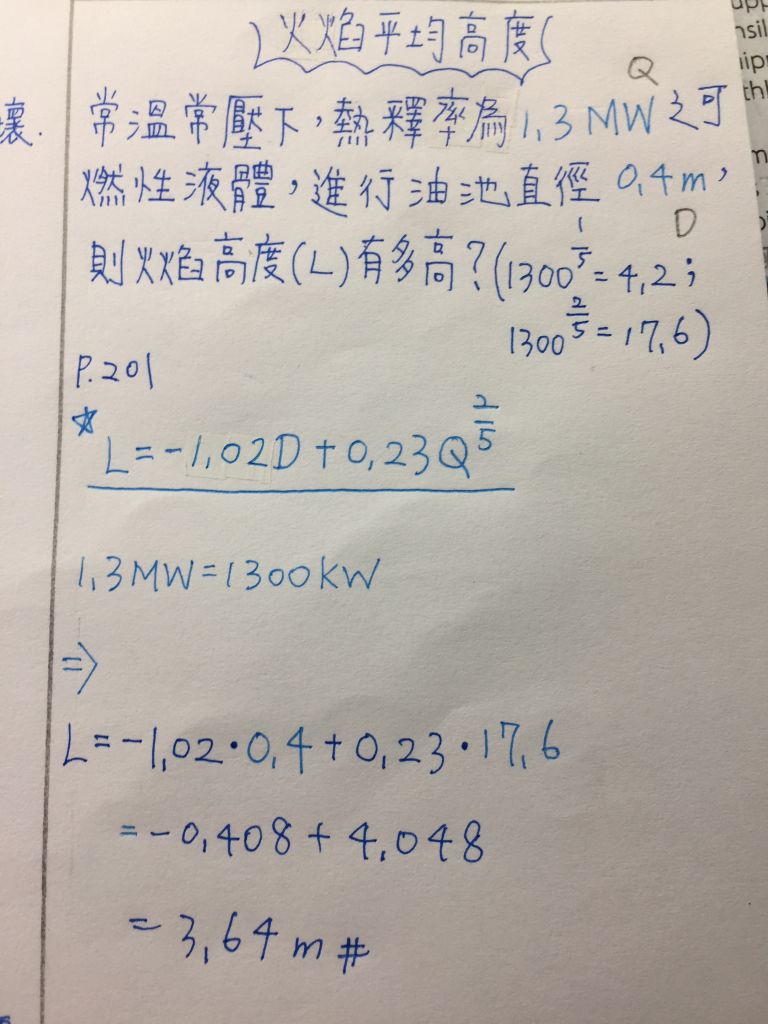 火焰平均高度
Q
常溫常壓下，熱釋率為1,3MW之可
燃性液體，進行油池直徑 0,4m，
D
則火焰高度(L)有多高？(1300^{1/5}=4,2；
1300^{2/5}=17,6)
P.201
☆
L=-1,02D+0,23Q^{2/5}
1,3MW=1300KW
⇒
L=-1,02·0,4+0,23·17,6
=-0,408+4,048
=3,64m#
壞.